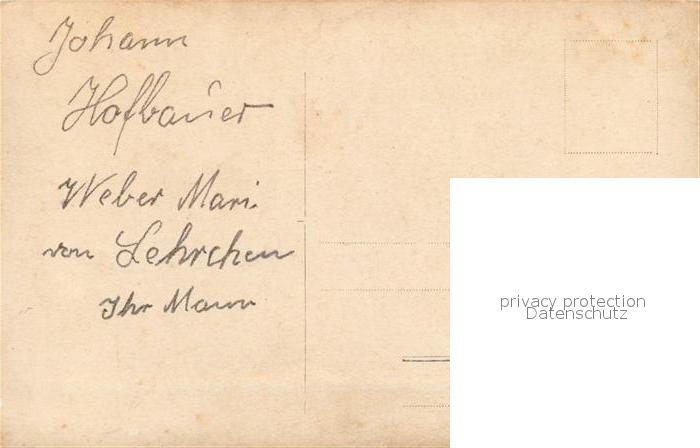 Johann
Hofbauer
Weber Mari
von Lehrchen
Ihr Mann
privacy protection
Datenschutz